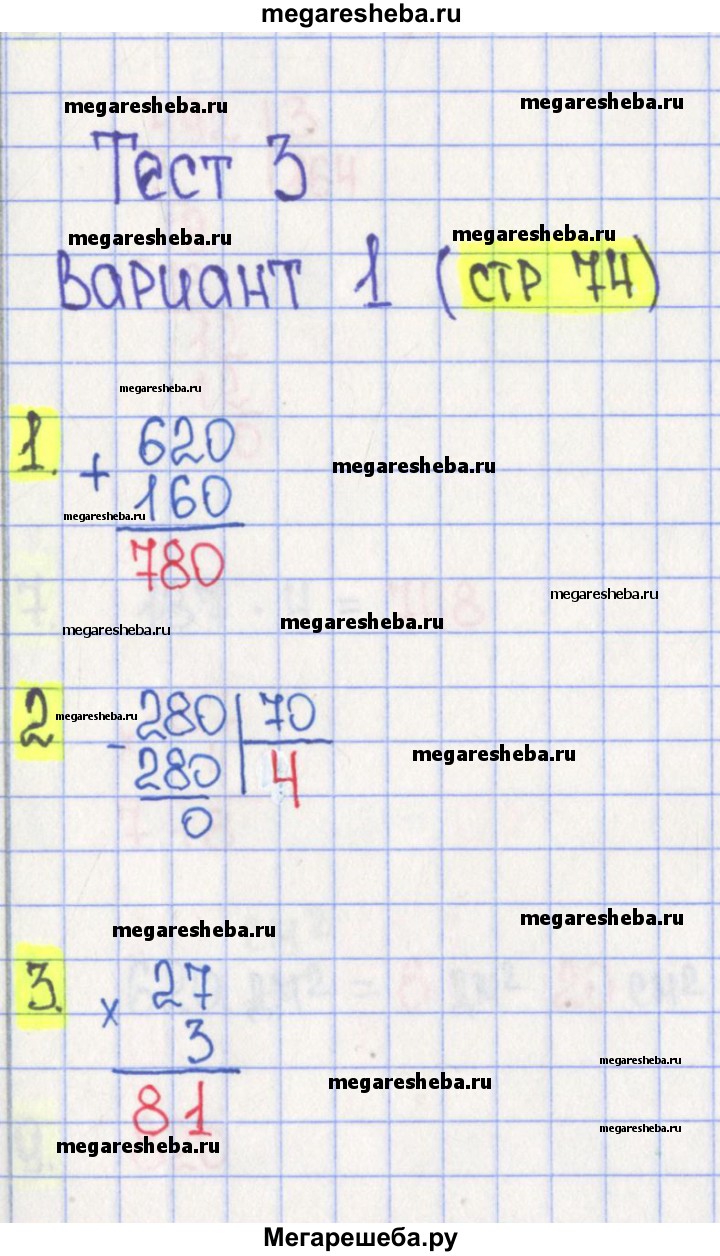 megaresheba.ru
megaresheba.ru megaresheba.ru
Тест 3
megaresheba.ru megaresheba.ru
Вариант 1 (стр 74)
megaresheba.ru
1. + 620
megaresheba.ru
160
megaresheba.ru
780
megaresheba.ru
megaresheba.ru megaresheba.ru
2 - 280 70
megaresheba.ru
280 4
megaresheba.ru
0
megaresheba.ru megaresheba.ru
3. x 27
3
megaresheba.ru
megaresheba.ru
81
megaresheba.ru
megaresheba.ru
Мегарешеба.ру